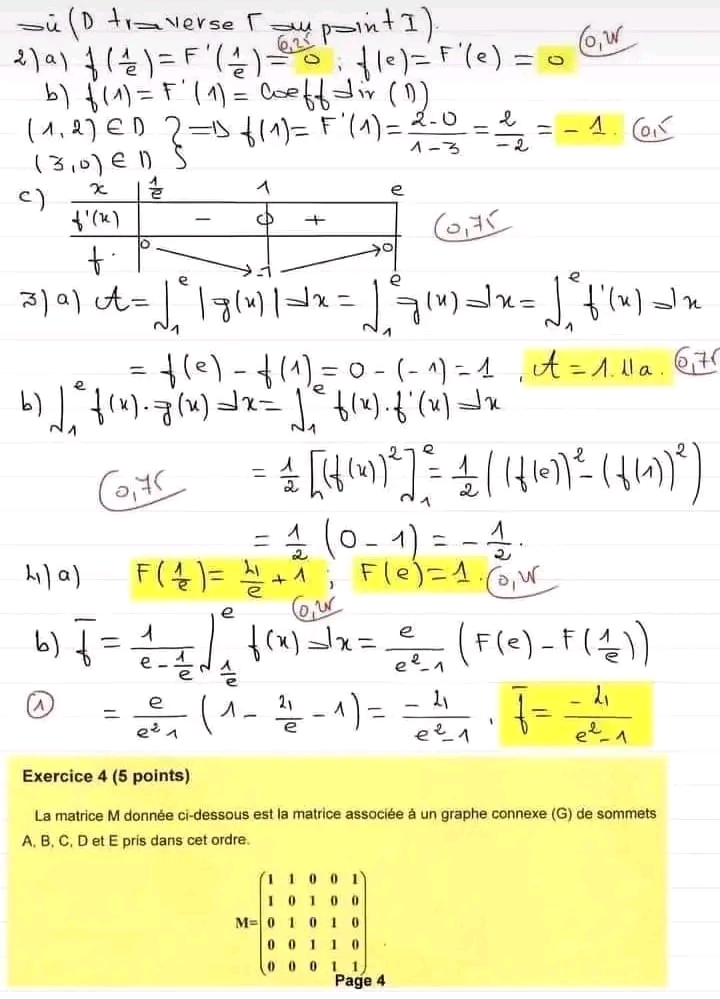 où (D traverse Γ au point I).
2) a) f(1/e) = F'(1/e) = 0 ; f(e) = F'(e) = 0 (0,25) (0,25)
b) f(1) = F'(1) = Coeff dir (D)
(1,2) ∈ D } => f(1) = F'(1) = (2-0)/(1-3) = 2/-2 = -1. (0,5)
(3,0) ∈ D }
c) x | 1/e 1 e
f'(x) | - 0 + (0,75)
f | 0 -1 0
3) a) A = ∫₁ᵉ |g(x)| dx = ∫₁ᵉ g(x) dx = ∫₁ᵉ f'(x) dx
= f(e) - f(1) = 0 - (-1) = 1. A = 1. Ua. (0,75)
b) ∫₁ᵉ f(x).g(x) dx = ∫₁ᵉ f(x).f'(x) dx
(0,75) = 1/2 [(f(x))²]₁ᵉ = 1/2 ((f(e))² - (f(1))²)
= 1/2 (0 - 1) = - 1/2.
4) a) F(1/e) = 4/e + 1 ; F(e) = 1. (0,25)
(0,25)
b) f̄ = 1/(e - 1/e) ∫_{1/e}^e f(x) dx = e/(e²-1) (F(e) - F(1/e))
(1) = e/(e²-1) (1 - 4/e - 1) = -4/(e²-1). f̄ = -4/(e²-1)
Exercice 4 (5 points)
La matrice M donnée ci-dessous est la matrice associée à un graphe connexe (G) de sommets
A, B, C, D et E pris dans cet ordre.
1 1 0 0 1
1 0 1 0 0
M= 0 1 0 1 0
0 0 1 1 0
0 0 0 1 1
Page 4